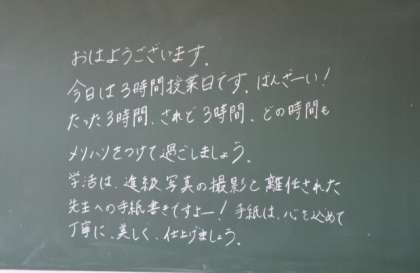 おはようございます。
今日は3時間授業日です。ばんざーい！
たった3時間、されど3時間、どの時間も
メリハリをつけて過ごしましょう。
学活は、進級写真の撮影と離任された
先生への手紙書きですよー！手紙は、心を込めて
丁寧に、美しく、仕上げましょう。